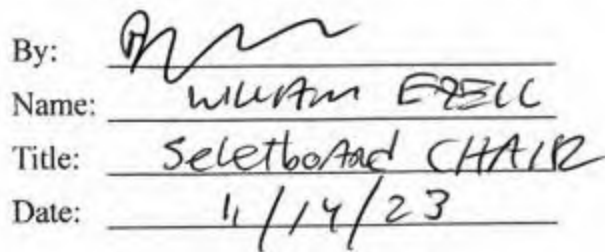 By:
Name: William Ezell
Title: Seletboard CHAIR
Date: 11/14/23